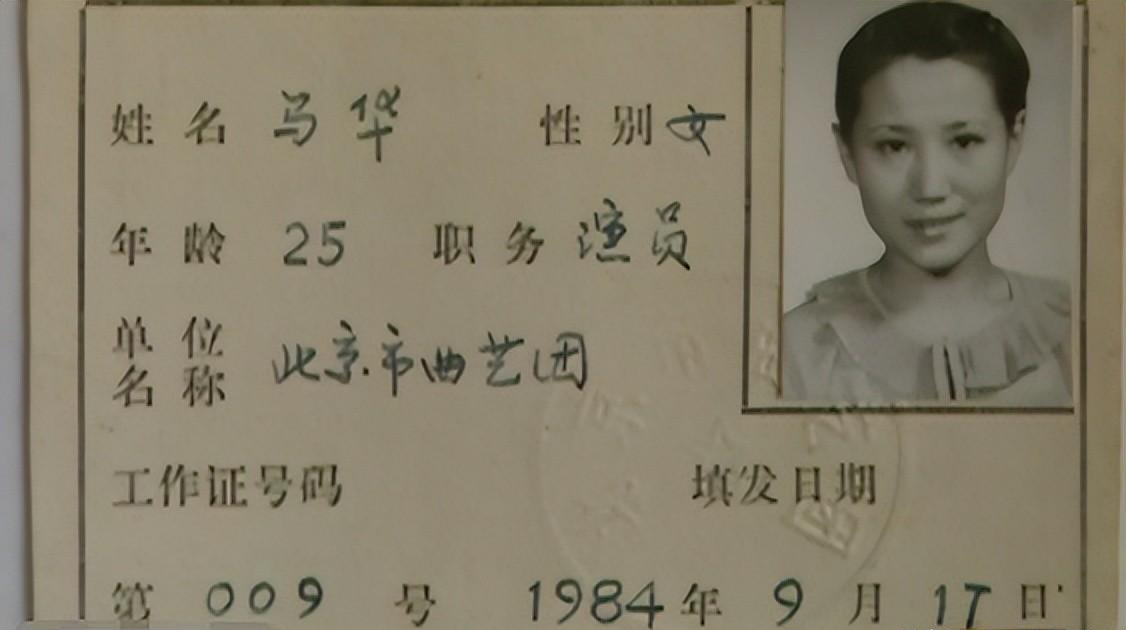 姓名 马华 性别 女
年龄 25 职务 演员
单位名称 北京市曲艺团
工作证号码 填发日期
第 009 号 1984年9月17日